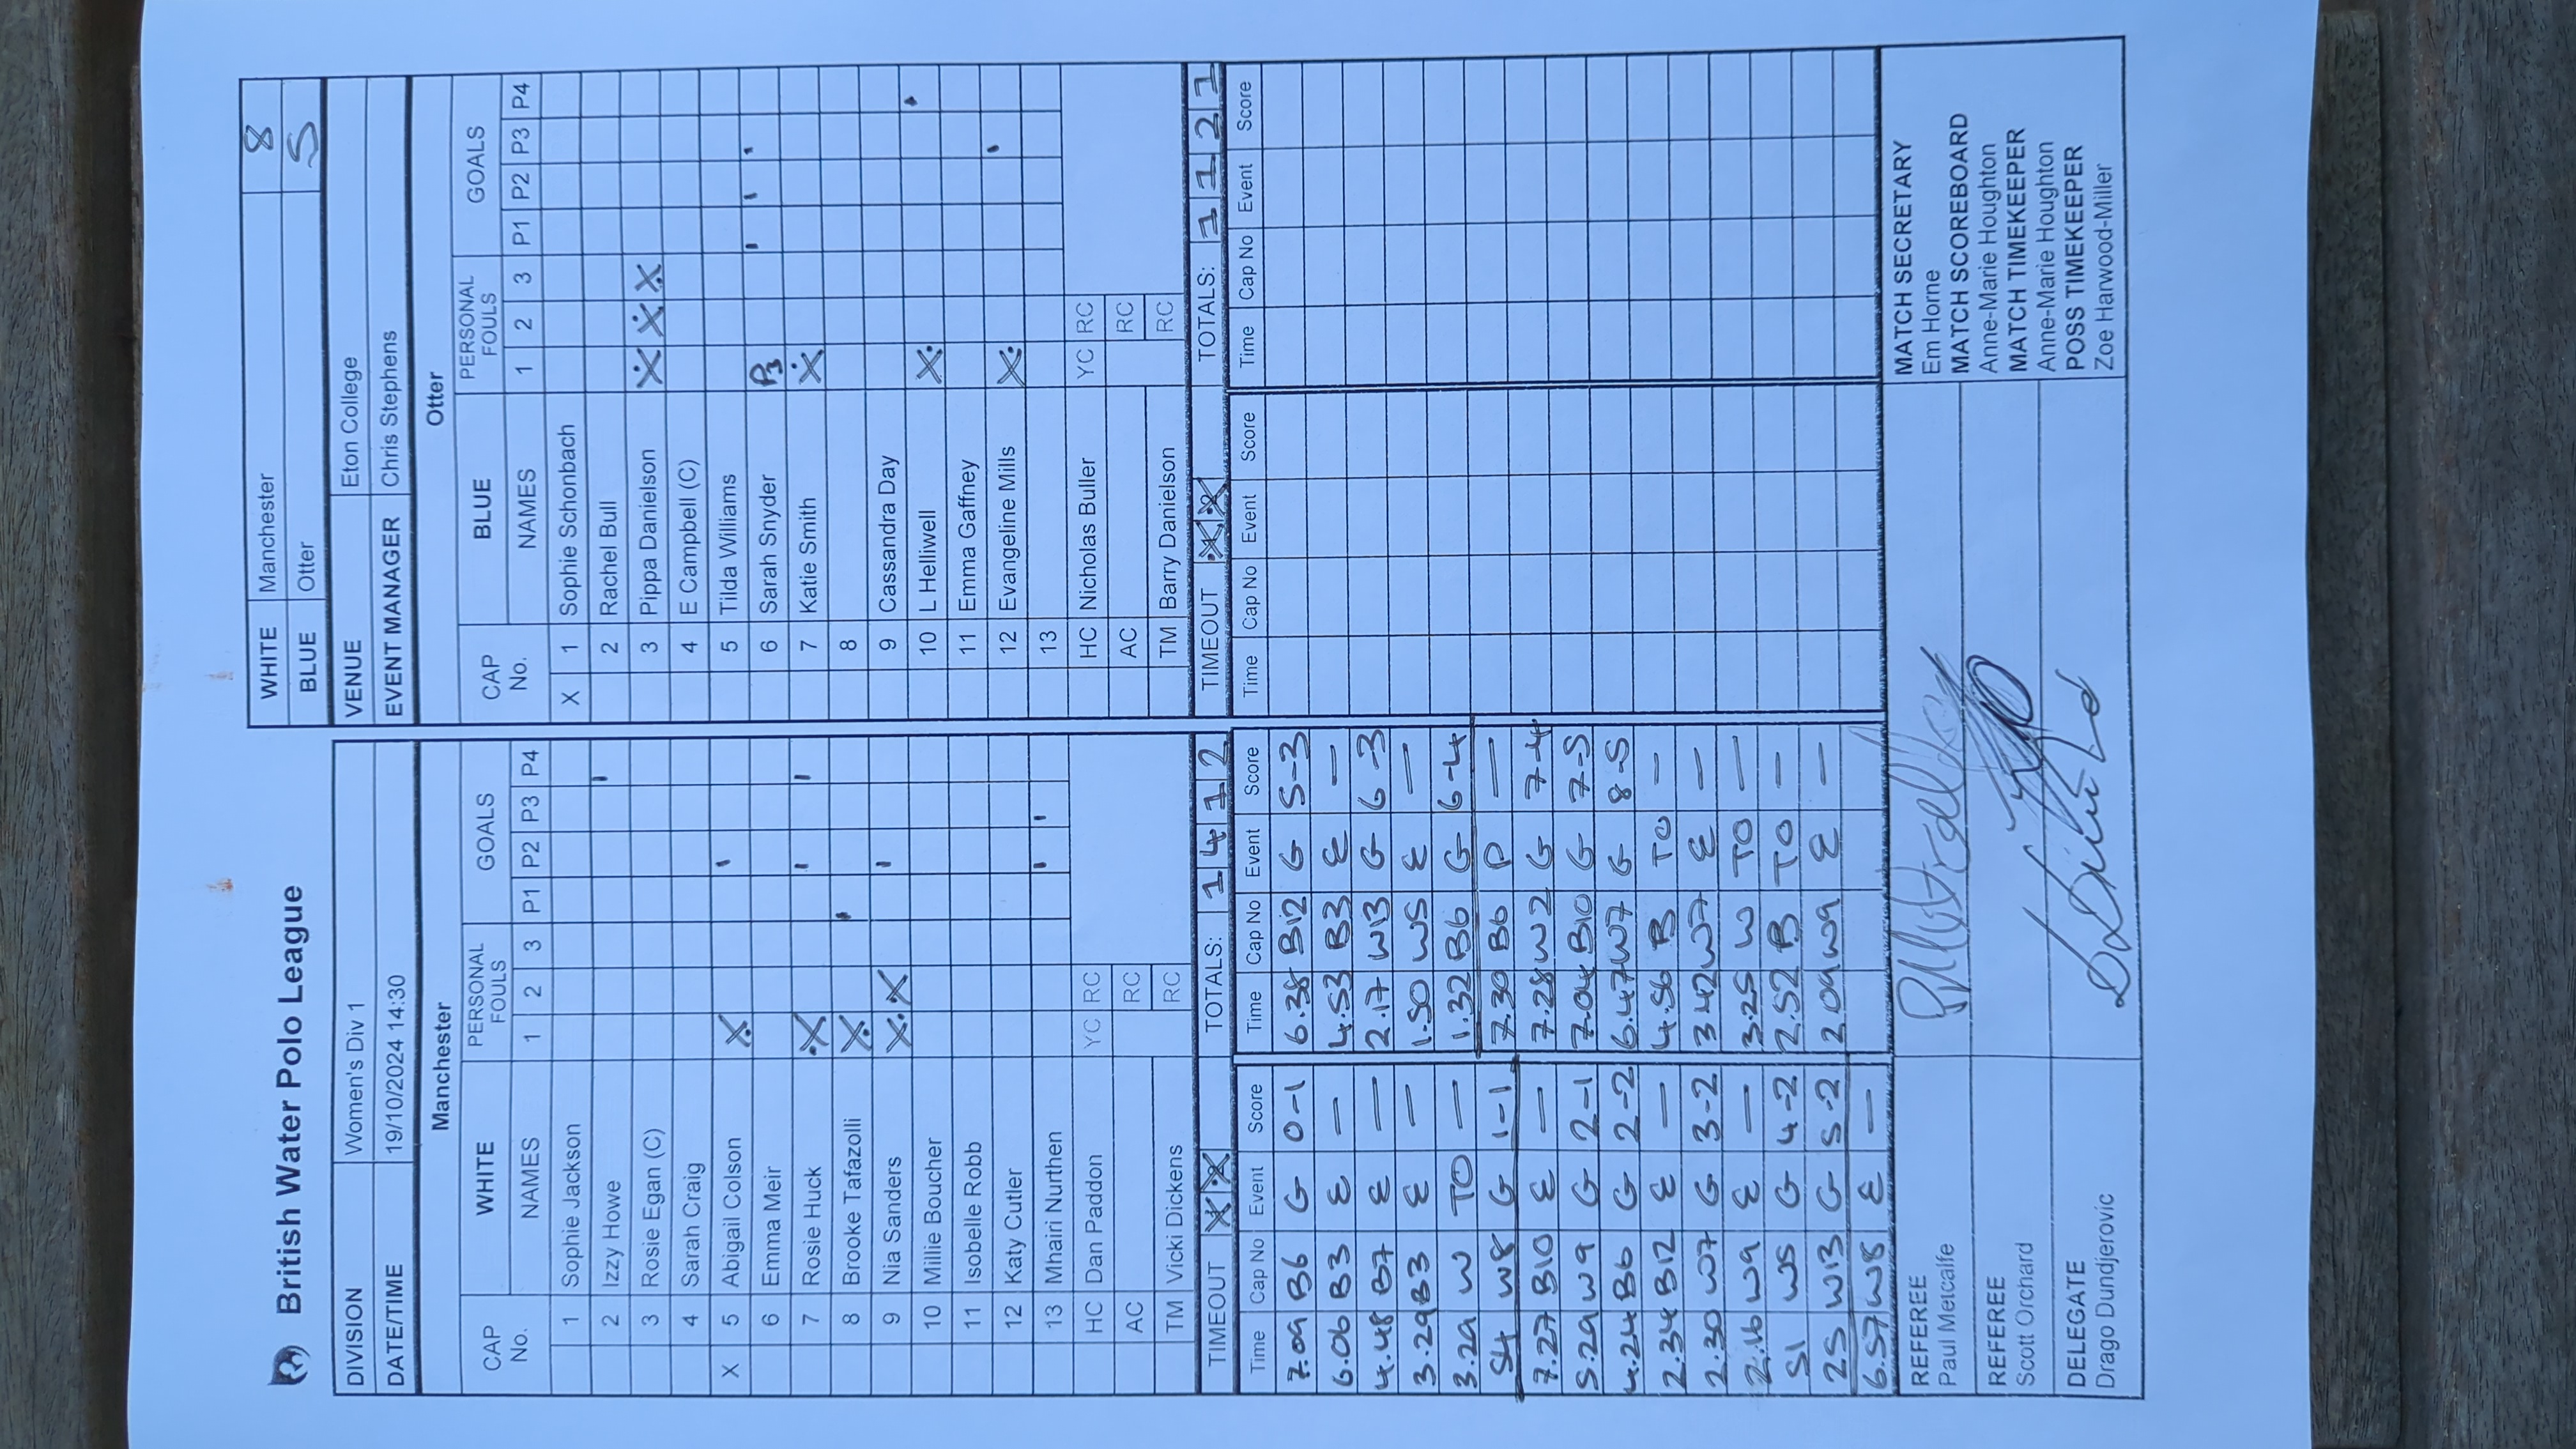 British Water Polo League
WHITE Manchester 8
BLUE Otter 5
DIVISION Women's Div 1
VENUE Eton College
DATE/TIME 19/10/2024 14:30
EVENT MANAGER Chris Stephens
Manchester
CAP No. WHITE NAMES PERSONAL FOULS 1 2 3 GOALS P1 P2 P3 P4
1 Sophie Jackson
2 Izzy Howe '
3 Rosie Egan (C)
4 Sarah Craig
X 5 Abigail Colson X '
6 Emma Meir
7 Rosie Huck X ' '
8 Brooke Tafazolli X '
9 Nia Sanders X X '
10 Millie Boucher
11 Isobelle Robb
12 Katy Cutler
13 Mhairi Nurthen ' '
HC Dan Paddon YC RC
AC RC
TM Vicki Dickens RC
TIMEOUT X X TOTALS: 1 4 1 2
Otter
CAP No. BLUE NAMES PERSONAL FOULS 1 2 3 GOALS P1 P2 P3 P4
X 1 Sophie Schonbach
2 Rachel Bull
3 Pippa Danielson X X X
4 E Campbell (C)
5 Tilda Williams
6 Sarah Snyder P ' ' '
7 Katie Smith X
8
9 Cassandra Day
10 L Helliwell X '
11 Emma Gaffney
12 Evangeline Mills X '
13
HC Nicholas Buller YC RC
AC RC
TM Barry Danielson RC
TIMEOUT X X TOTALS: 1 1 2 1
Time Cap No Event Score
7.09 B6 G 0-1
6.06 B3 E —
4.48 B7 E —
3.29 B3 E —
3.29 W TO —
54 W8 G 1-1
7.27 B10 E —
5.29 W9 G 2-1
4.24 B6 G 2-2
2.34 B12 E —
2.30 W7 G 3-2
2.16 W9 E —
51 W5 G 4-2
25 W13 G 5-2
6.57 W8 E —
Time Cap No Event Score
6.38 B12 G 5-3
4.53 B3 E —
2.17 W13 G 6-3
1.50 W5 E —
1.32 B6 G 6-4
7.30 B6 P —
7.28 W2 G 7-4
7.04 B10 G 7-5
6.47 W7 G 8-5
4.56 B TO —
3.42 W7 E —
3.25 W TO —
2.52 B TO —
2.09 W9 E —
Time Cap No Event Score
Time Cap No Event Score
REFEREE
Paul Metcalfe
REFEREE
Scott Orchard
DELEGATE
Drago Dundjerovic
MATCH SECRETARY
Em Horne
MATCH SCOREBOARD
Anne-Marie Houghton
MATCH TIMEKEEPER
Anne-Marie Houghton
POSS TIMEKEEPER
Zoe Harwood-Miller